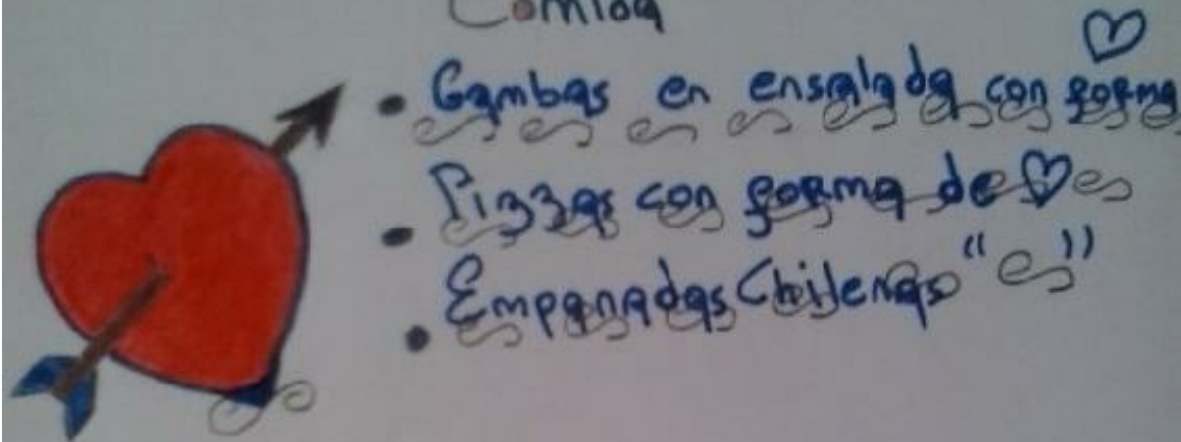 Comida
• Gambas en ensalada con forma
• Pizzas con forma de ♡
• Empanadas Chilenas " "